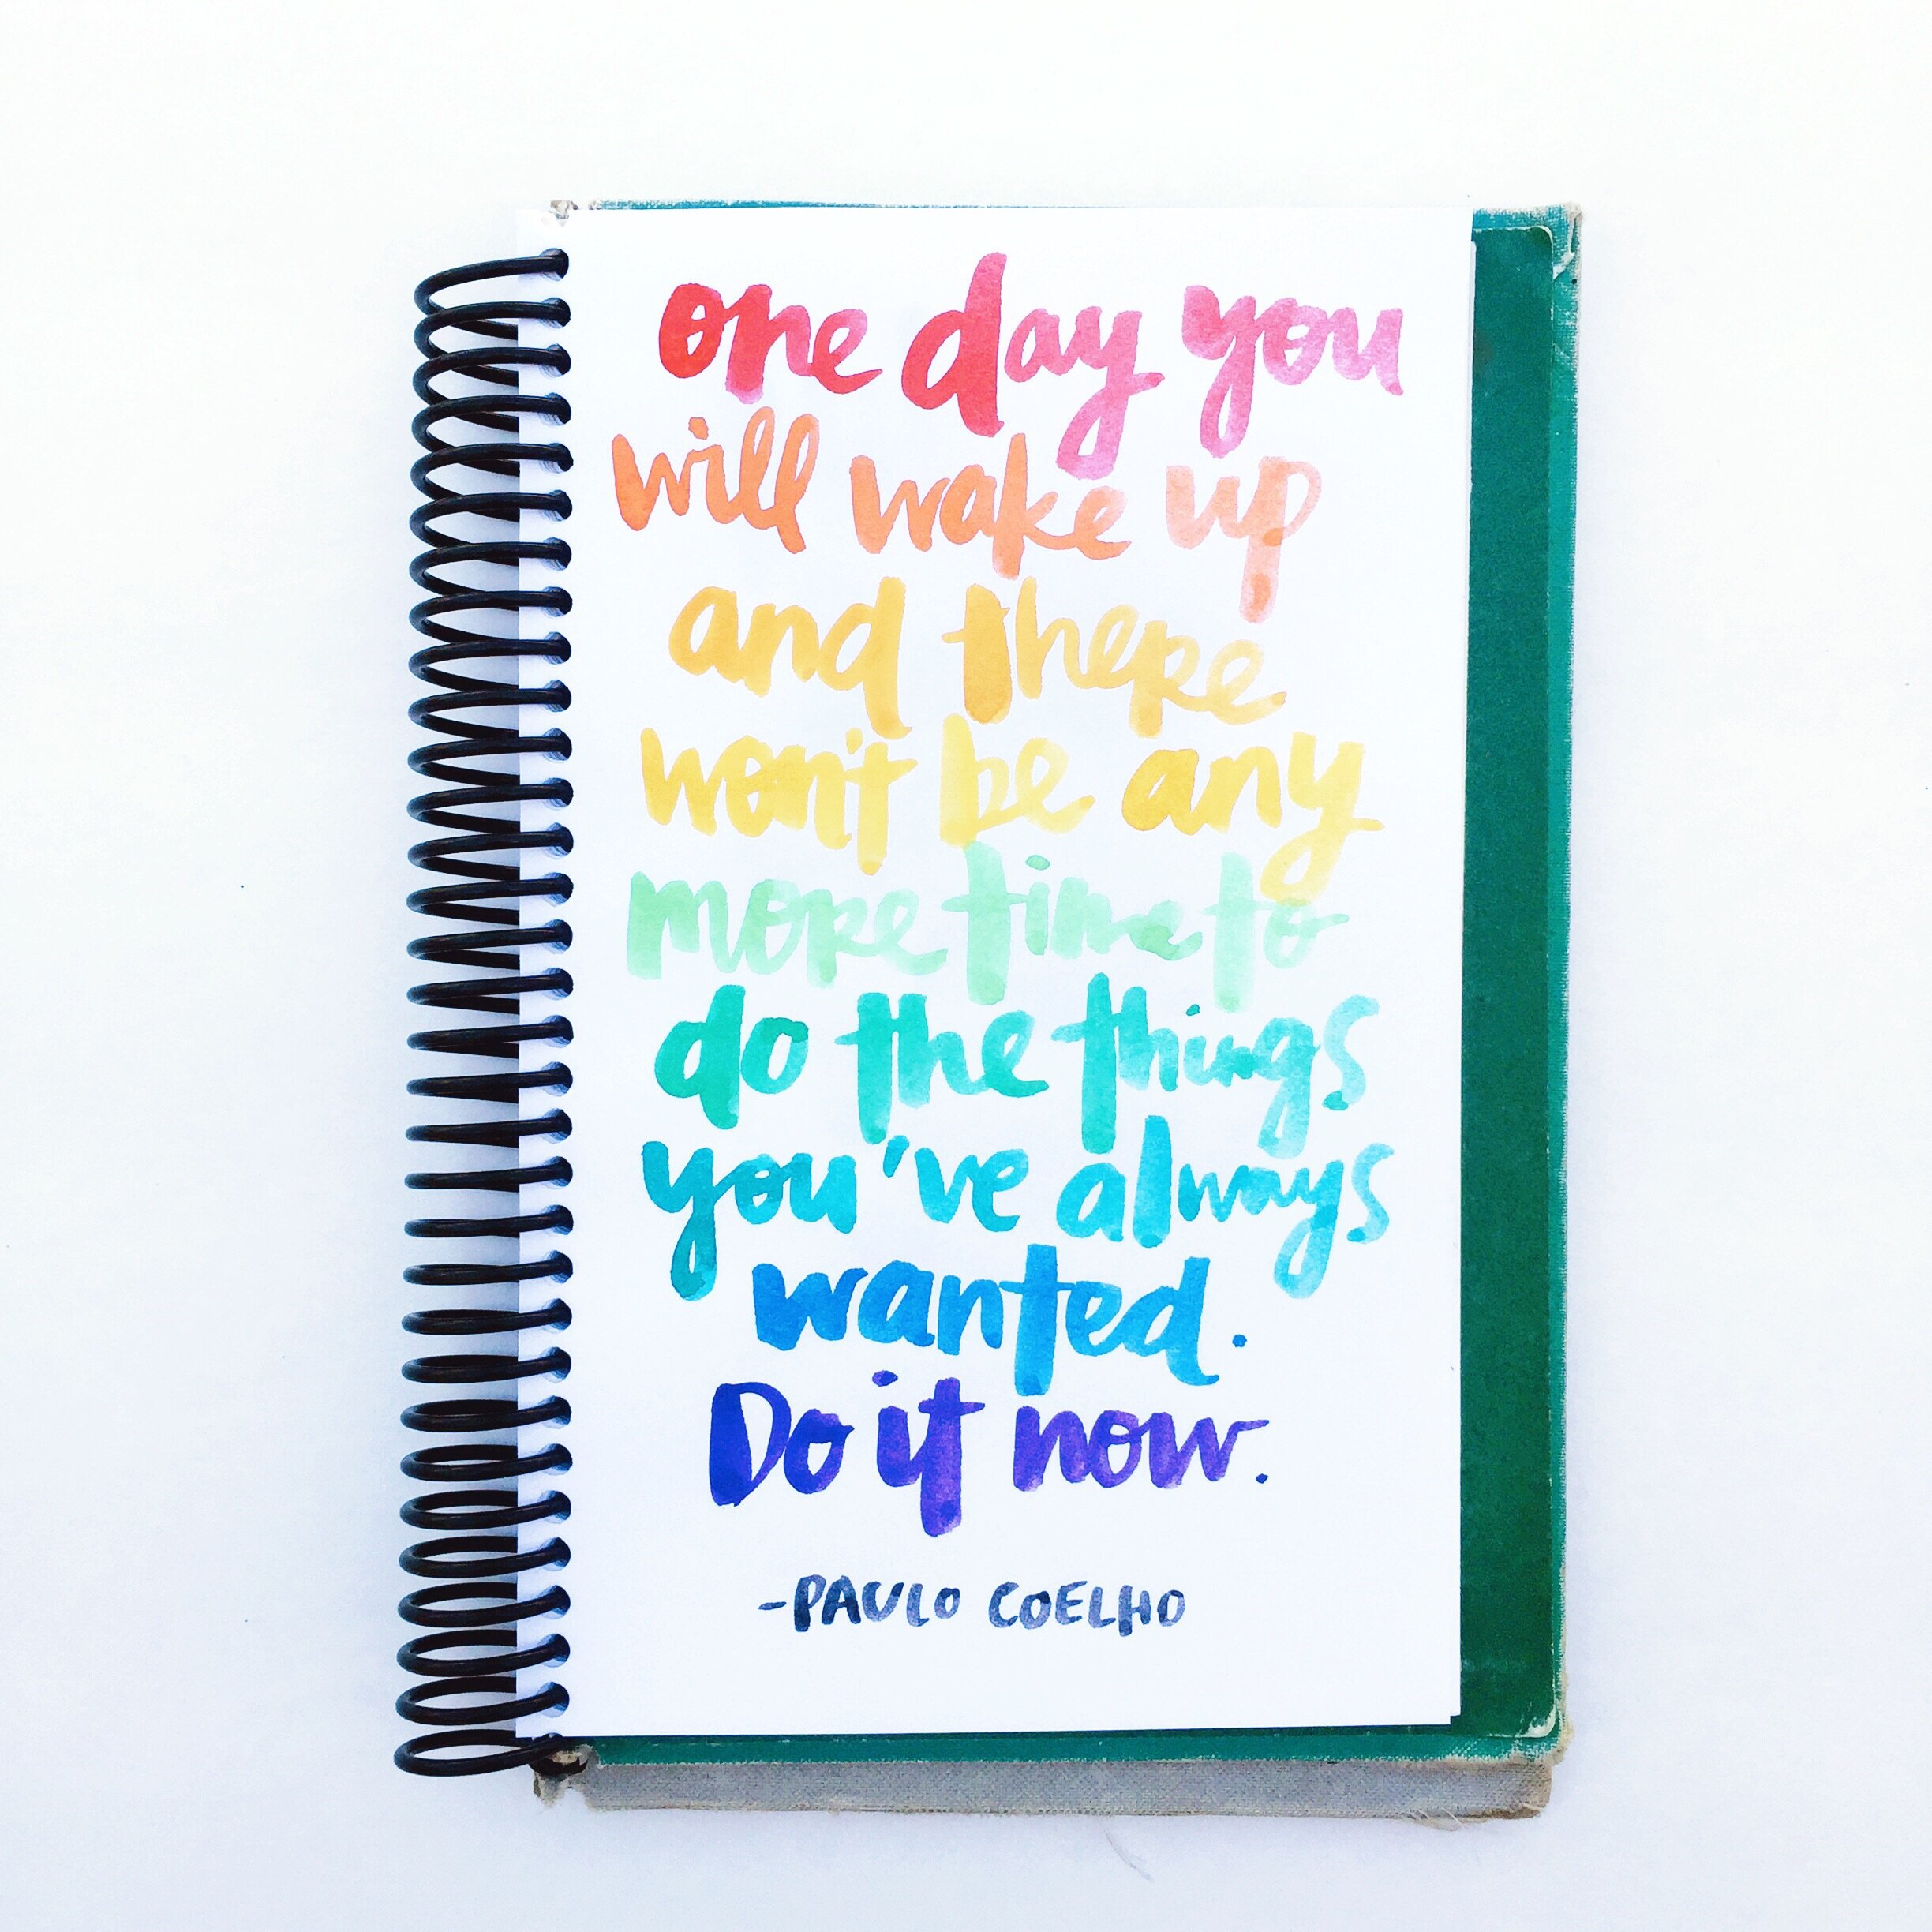 one day you
will wake up
and there
won't be any
more time to
do the things
you've always
wanted.
Do it now.
-PAULO COELHO